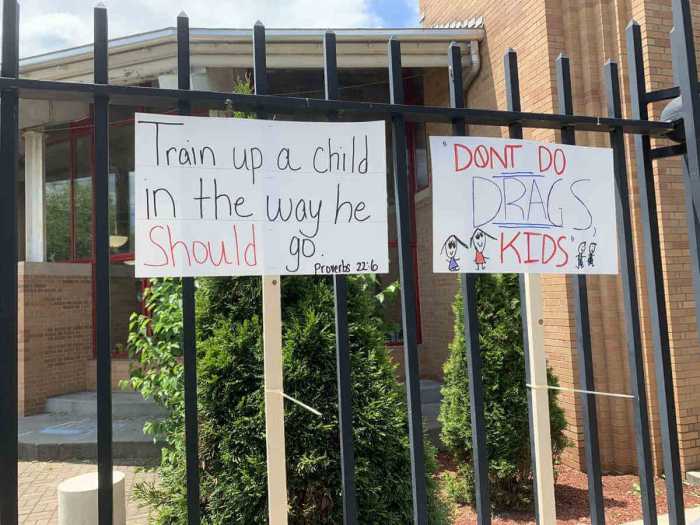 Train up a child
in the way he
Should go.
Proverbs 22:6
"DONT DO
DRAGS,
KIDS"